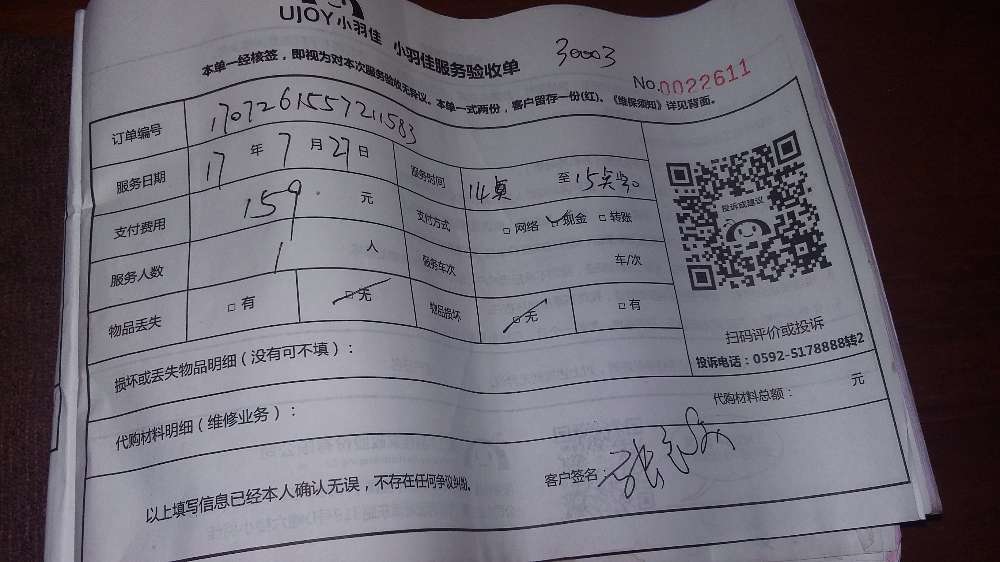 UJOY小羽佳 小羽佳服务验收单 30003
No.0022611
本单一经核签，即视为对本次服务验收无异议。本单一式两份，客户留存一份(红)。《维保须知》详见背面。
订单编号 1707261557211583
服务日期 17 年 7 月 27 日 服务时间 14点 至 15点
支付费用 159 元 支付方式 □ 网络 □ 现金 □ 转账
服务人数 1 人 服务车次 车/次
物品丢失 □ 有 □ 无 物品损坏 □ 无 □ 有
投诉或建议
扫码评价或投诉
投诉电话：0592-5178888转2
损坏或丢失物品明细（没有可不填）：
代购材料明细（维修业务）： 代购材料总额： 元
以上填写信息已经本人确认无误，不存在任何争议纠纷。 客户签名：